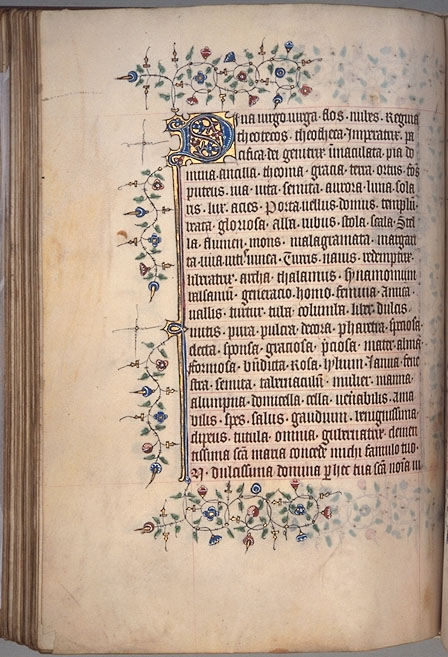 iua uirgo uirga · flos · nubes · Regina
theotecos · theotheca · Imperatrix · pa
cifica dei genitrix īmaculata · pia d
mina · ancilla · theoma · gracia · terra · ortus · fōs
puteus · uia · uita · semita · aurora · luna · sola
ris · lux · acies · Porta · uellus · domus · templū
beata · gloriosa · alla · nubus · stola · scala · Stel
la · flumen · mons · malagramata · margari
ta · Turris · nauis · redemptrix ·
liberatrix · archa · thalamus · synamomum
balsamū · generacio · homo · femina · amica ·
uallis · turtur · tuba · columba · liber · dulcis ·
mitis · pura · pulcra · decora · pharetra · speciosa ·
electa · sponsa · graciosa · p̄ciosa · mater · alma ·
formosa · būdicta · Rosa · lylium · Ianua · fene
stra · semita · tabernaculū · mulier · manna ·
alumpna · domicella · cella · uenabilis · ama
bilis · spes · salus · gaudium · benignissima ·
clipeus · titula · omnia · gubernatrix · clemen
tissima scā maria concede michi famulo tuo
N · dulcissima domina p̄ hec tua scā noīa ūt